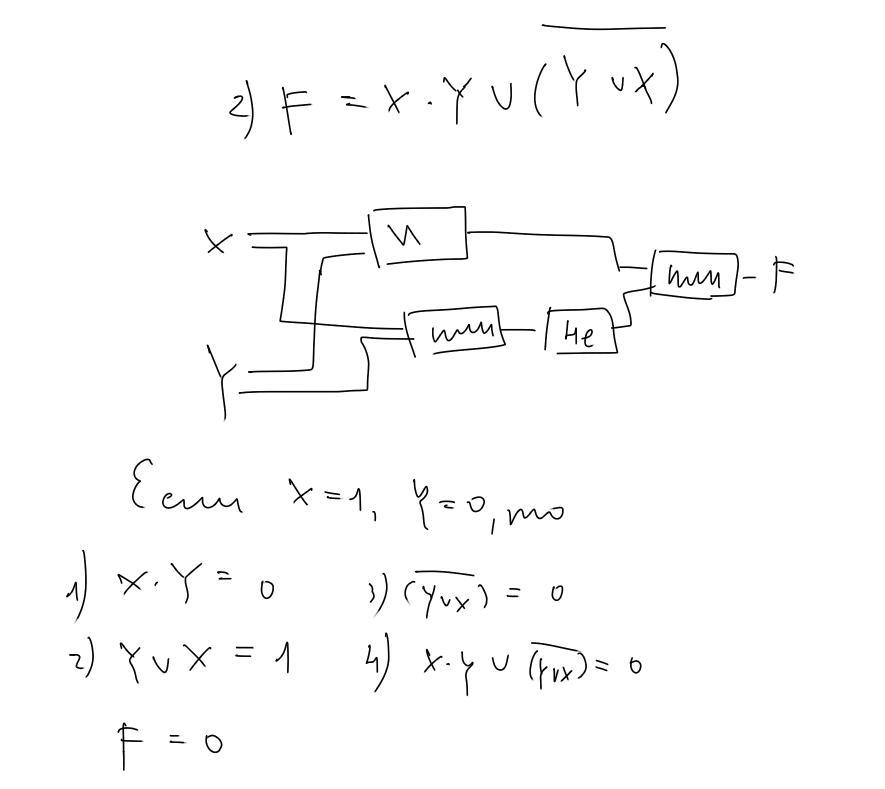 2) F = X · Y ∨ (\overline{Y ∨ X})
X
И
или
F
Y
или
не
Если X = 1, Y = 0, то
1) X · Y = 0
3) (\overline{Y ∨ X}) = 0
2) Y ∨ X = 1
4) X · Y ∨ (\overline{Y ∨ X}) = 0
F = 0